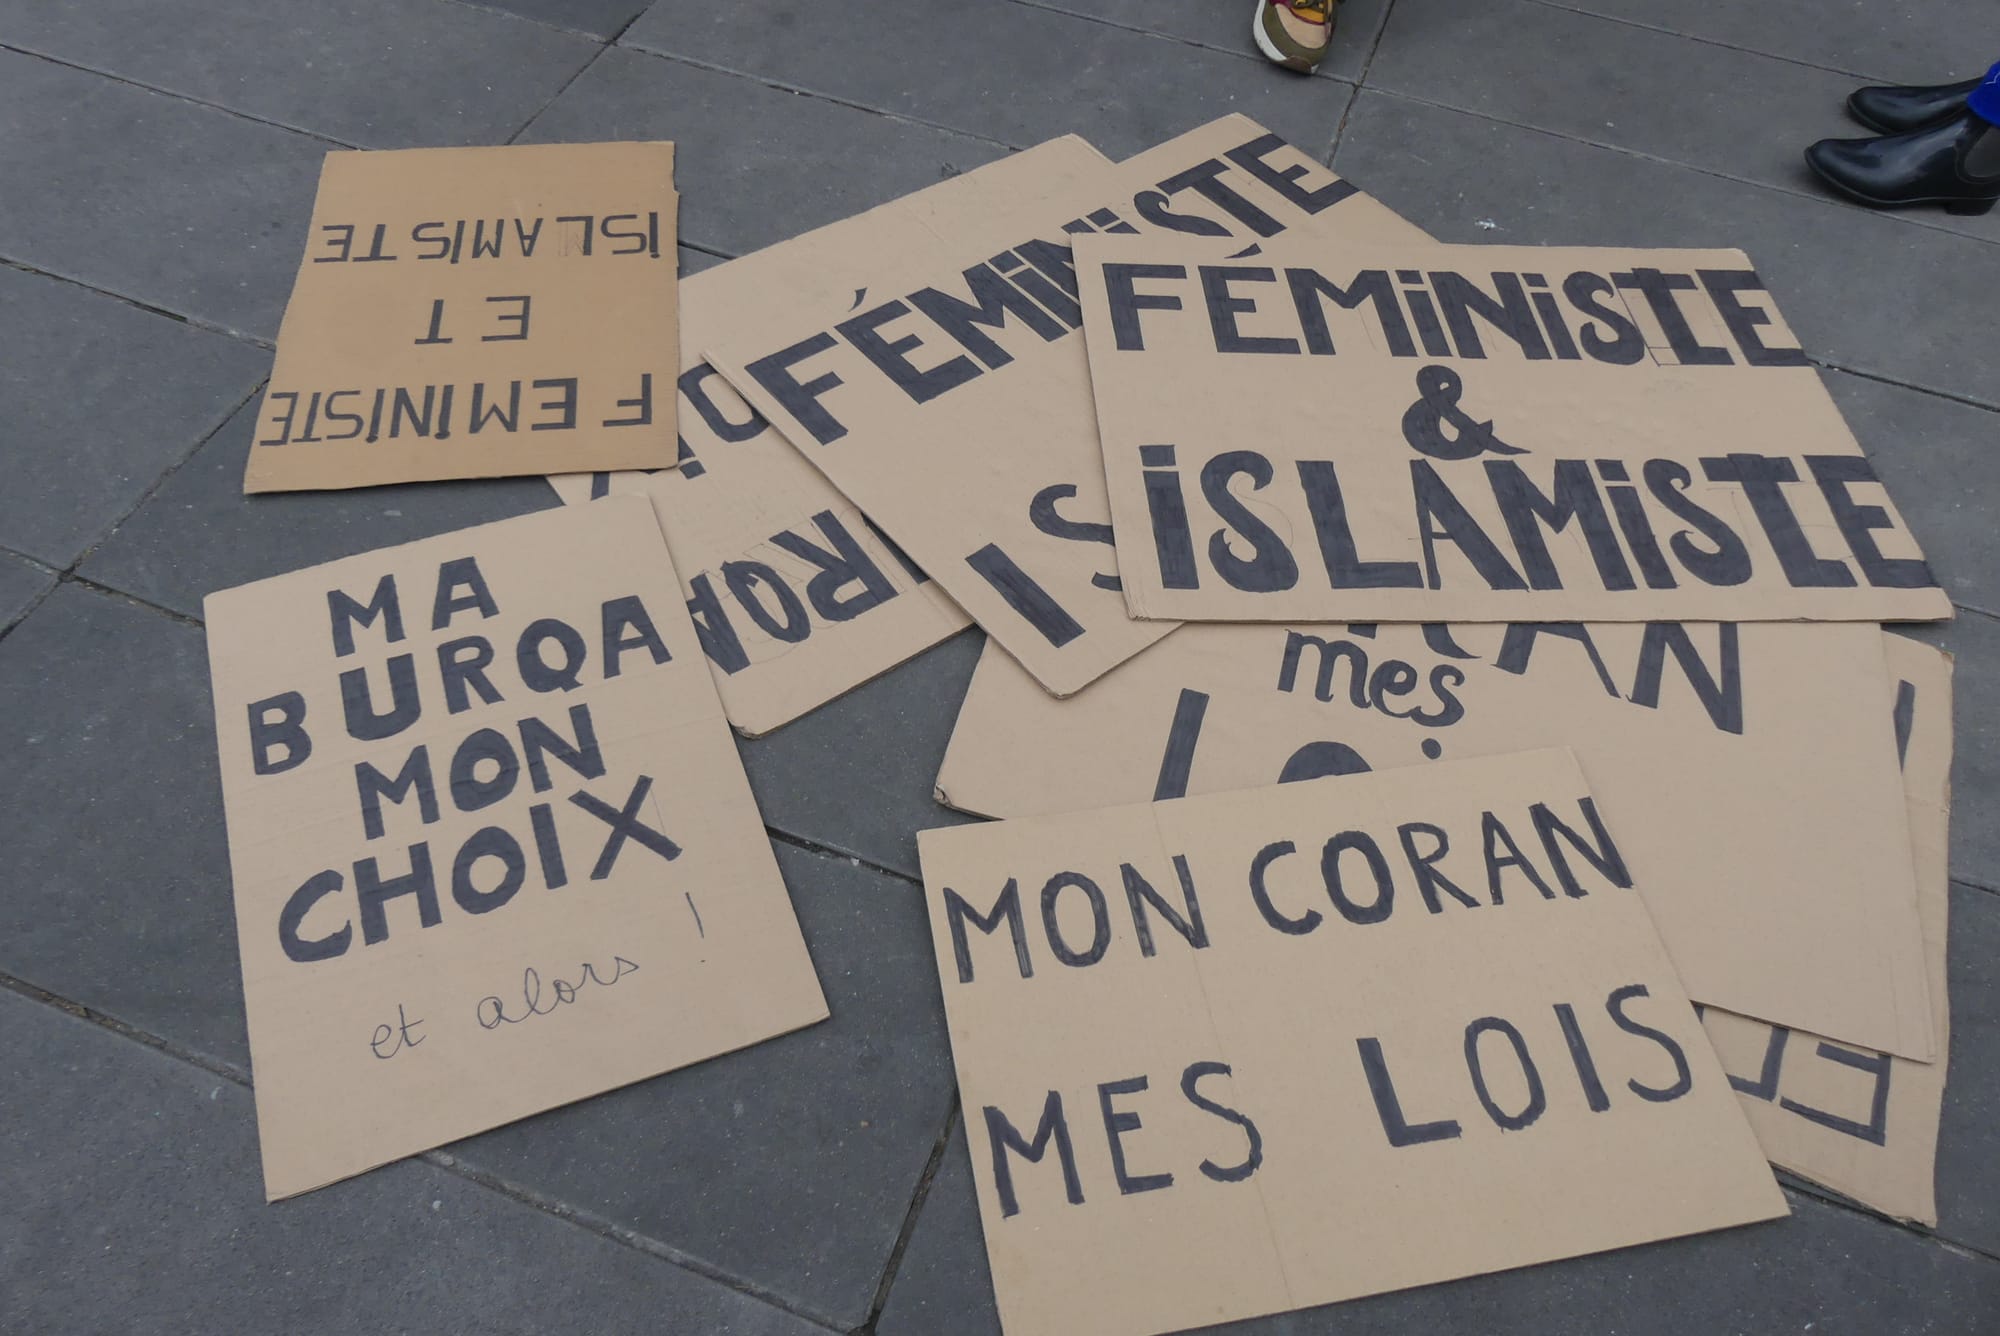 FEMINISTE
ET
ISLAMISTE
FÉMINISTE
IS
FÉMINISTE
&
ISLAMISTE
MA
BURQA
MON
CHOIX
et alors !
mes
MON CORAN
MES LOIS